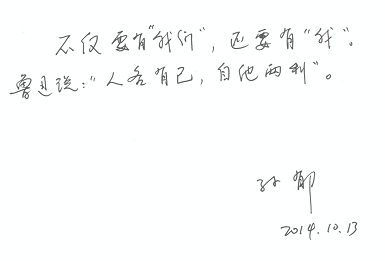 不仅要有“我们”，还要有“我”。
鲁迅说：“人各有己，自他两利”。
孙郁
2014.10.13